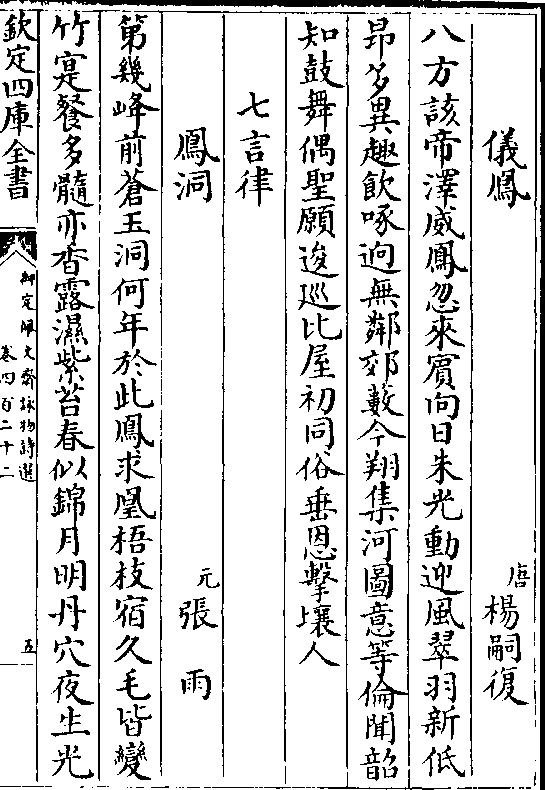 儀鳳 唐楊嗣復
八方該帝澤威鳳忽來賔向日朱光動迎風翠羽新低
昂多異趣飲啄迥無鄰郊藪今翔集河圖意等倫聞韶
知鼓舞偶聖願逡巡比屋初同俗垂恩擊壤人
七言律
鳳洞 元張雨
第幾峰前蒼玉洞何年於此鳳求凰梧枝宿久毛皆變
竹寔餐多髓亦香露濕紫苔春似錦月明丹穴夜生光
欽定四庫全書
御定佩文齋詠物詩選
卷四百二十二
五